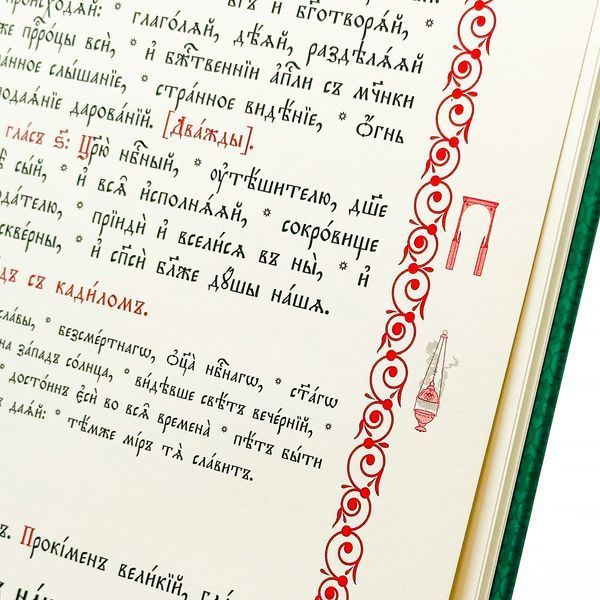 происходѧ́й: * глаго́лѧй, дѣ́ѧй, раздѣлѧ́ѧй
же прⷪ҇ро́цы всѝ, * и҆ бж҃е́ственнїи а҆п҇ли съ мч҃нки
стра́нное слы́шанїе, * стра́нное ви́дѣнїе, * ѻ҆́гнь
подаѧ́нїе дарова́нїй. [Два́жды].
гла́съ ѕ҃: Цр҃ю̀ нбⷭ҇ный, * ᲂу҆тѣ́шителю, дш҃е
сы́й, * и҆ всѧ̑ и҆сполнѧ́ѧй, * сокро́вище
пода́телю, * прїидѝ и҆ всели́сѧ въ ны̀, * и҆
скве́рны, * и҆ сп҃сѝ бл҃же дꙋ́шы на́шѧ.
съ кади́ломъ.
сла́вы, * безсме́ртнагѡ, ѻ҆ц҃а̀ нбⷭ҇нагѡ, * ст҃а́гѡ
на за́падъ со́лнца, * ви́дѣвше свѣ́тъ вече́рнїй, *
* досто́инъ є҆сѝ во всѧ̑ времена̀ * пѣ́тъ бы́ти
даѧ́й: * тѣ́мже мі́ръ тѧ̀ сла́витъ.
Прокі́менъ вели́кїй,